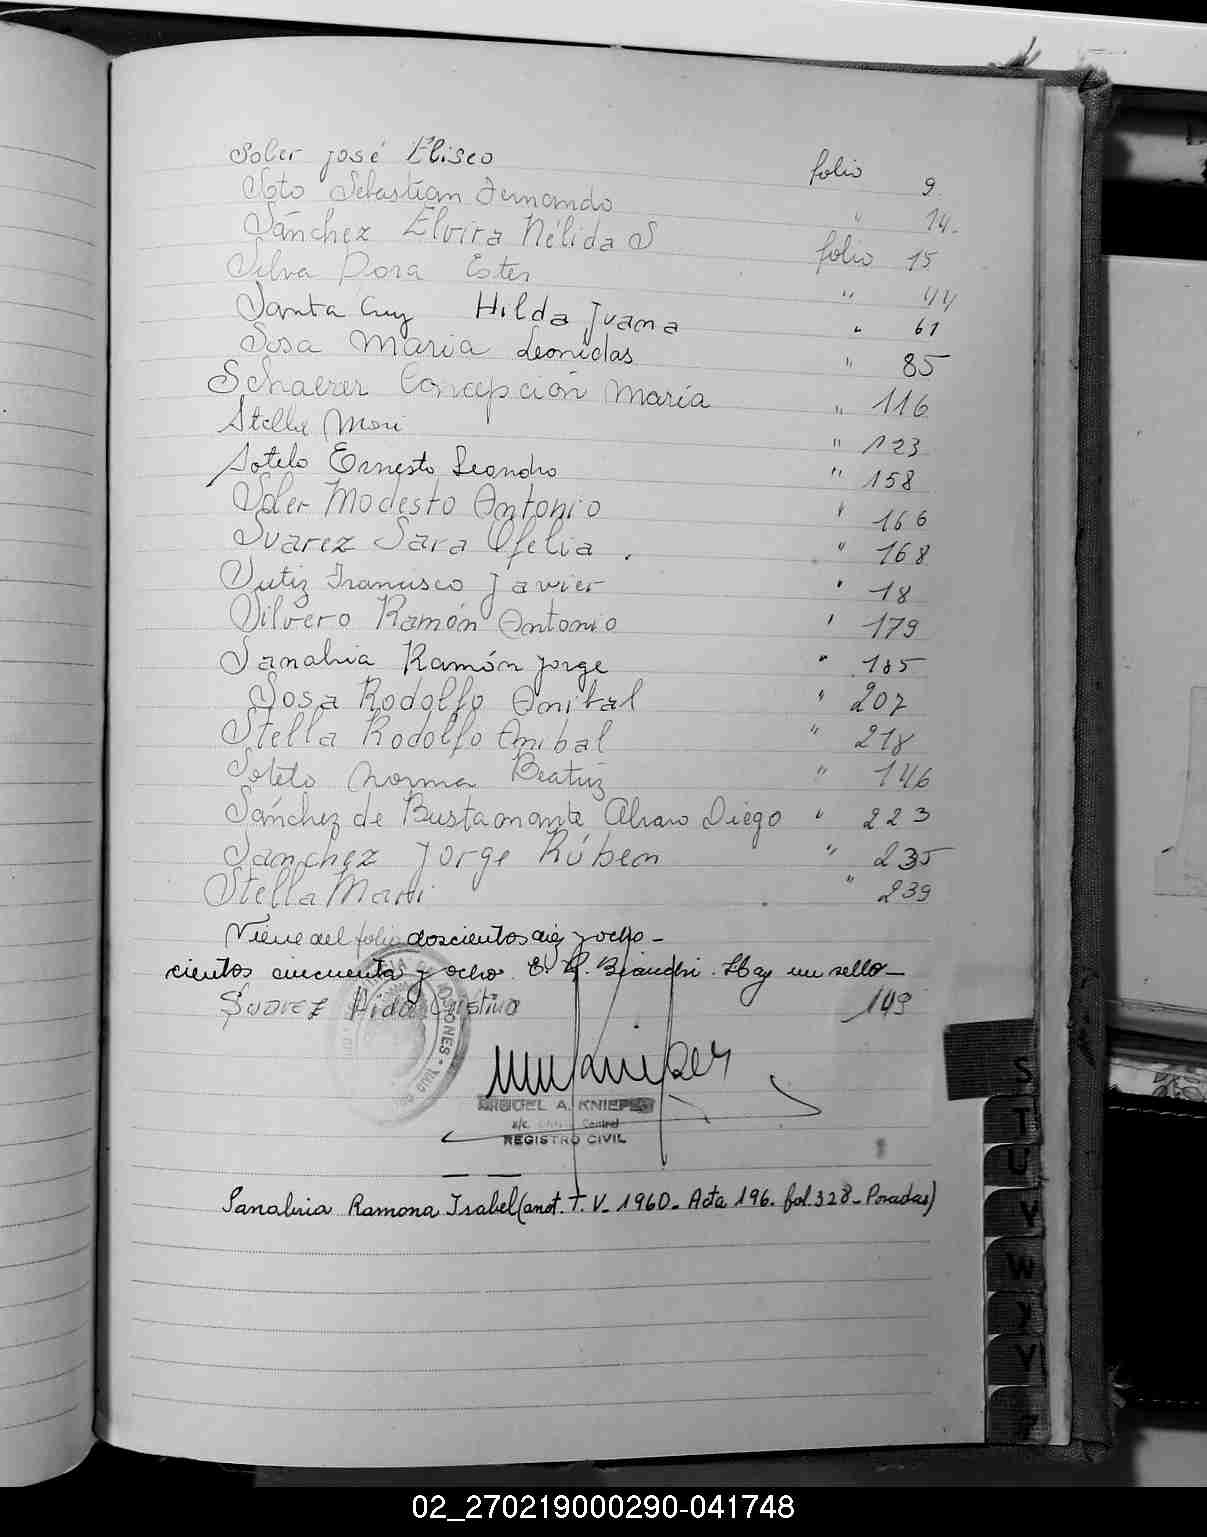 Soler José Eliseo folio 9
Soto Sebastian Fernando " 14.
Sánchez Elvira Nélida S folio 15
Silva Dora Ester " 44
Santa Cruz Hilda Juana " 61
Sosa Maria Leonidas " 85
Schaerer Concepción María " 116
Stella Mari " 123
Sotelo Ernesto Leandro " 158
Soler Modesto Antonio " 166
Suarez Sara Ofelia . " 168
Sutiz Francisco Javier " 18
Silvero Ramón Antonio " 179
Sanabria Ramón Jorge " 185
Sosa Rodolfo Anibal " 207
Stella Rodolfo Anibal " 218
Sotelo Norma Beatriz " 146
Sánchez de Bustamante Alvaro Diego " 223
Sanchez Jorge Rúben " 235
Stella Mari " 239
Viene del folio doscientos diez y ocho -
cientos cincuenta y ocho. E. R. Bianchi. Hay un sello -
Suarez Aida Cristina 149
MIGUEL A. KNIEPER
REGISTRO CIVIL
Sanabria Ramona Isabel (anot. T. V - 1960 - Acta 196. fol. 328 - Posadas)
S
T
U
V
W
Y
02_270219000290-041748